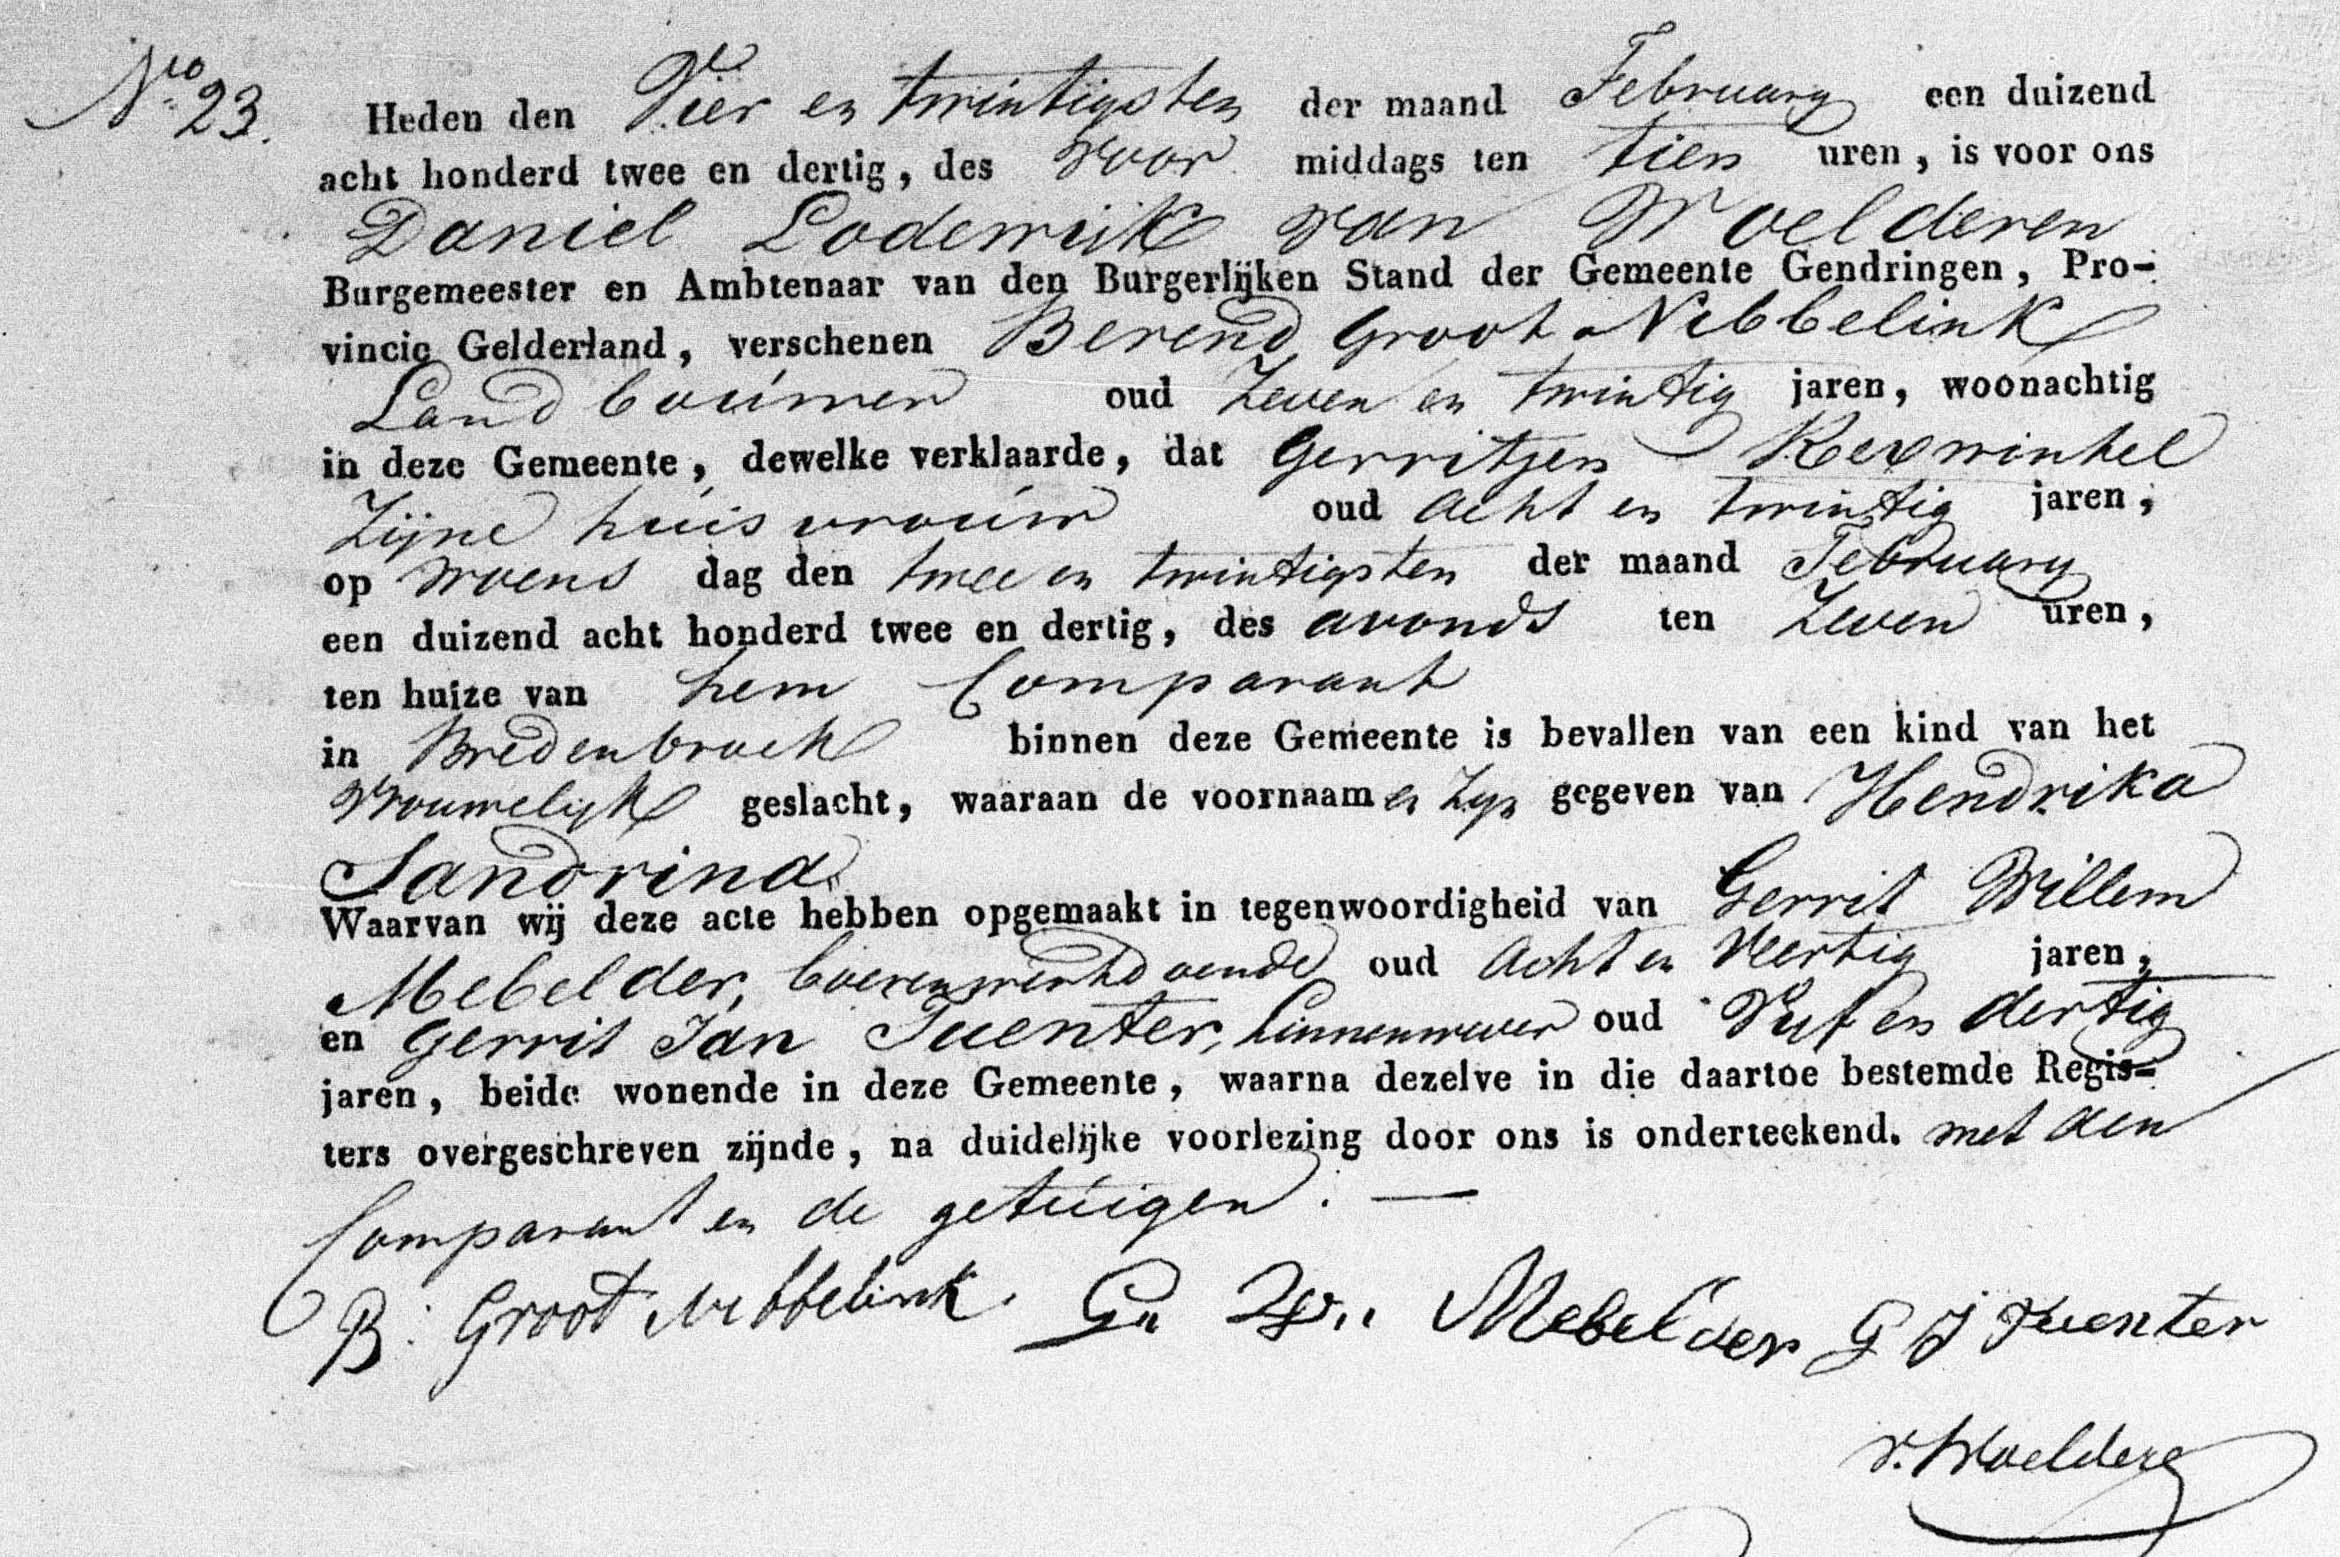 Nro 23.
Heden den Vier en twintigsten der maand February een duizend
acht honderd twee en dertig, des voor middags ten tien uren, is voor ons
Daniel Lodewijk van Woelderen
Burgemeester en Ambtenaar van den Burgerlijken Stand der Gemeente Gendringen, Pro-
vincie Gelderland, verschenen Berend Groot Nibbelink
Landbouwer oud Zeven en twintig jaren, woonachtig
in deze Gemeente, dewelke verklaarde, dat Gerritjen Rexwinkel
Zijne huisvrouw oud Acht en twintig jaren,
op Woens dag den twee en twintigsten der maand February
een duizend acht honderd twee en dertig, des avonds ten Zeven uren,
ten huize van hem Comparant
in Bredenbroek binnen deze Gemeente is bevallen van een kind van het
Vrouwelijk geslacht, waaraan de voornaamen Zijn gegeven van Hendrika
Sandrina
Waarvan wij deze acte hebben opgemaakt in tegenwoordigheid van Gerrit Willem
Mebelder, boerenwerkdoende oud Acht en Veertig jaren,
en Gerrit Jan Tuenter, Linnenwever oud Vijf en dertig
jaren, beide wonende in deze Gemeente, waarna dezelve in die daartoe bestemde Regis-
ters overgeschreven zijnde, na duidelijke voorlezing door ons is onderteekend. met den
Comparant en de getuigen.
B: Groot Nibbelink. G. W. Mebelder G J Tuenter
v. Woelderen